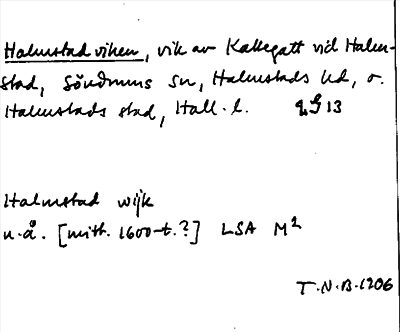 Halmstadviken, vik av Kattegatt vid Halm-
stad, Söndrums sn, Halmstads hd, o.
Halmstads stad, Hall. l. 4 G 13
Halmstad wijk
u.å. [mitt. 1600-t.?] LSA M²
T.N.B. 1206